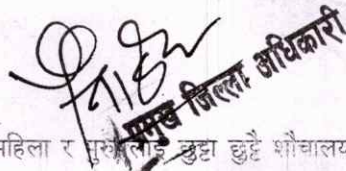 प्रमुख जिल्ला अधिकारी
महिला र पुरुषलाई छुट्टा छुट्टै शौचालय